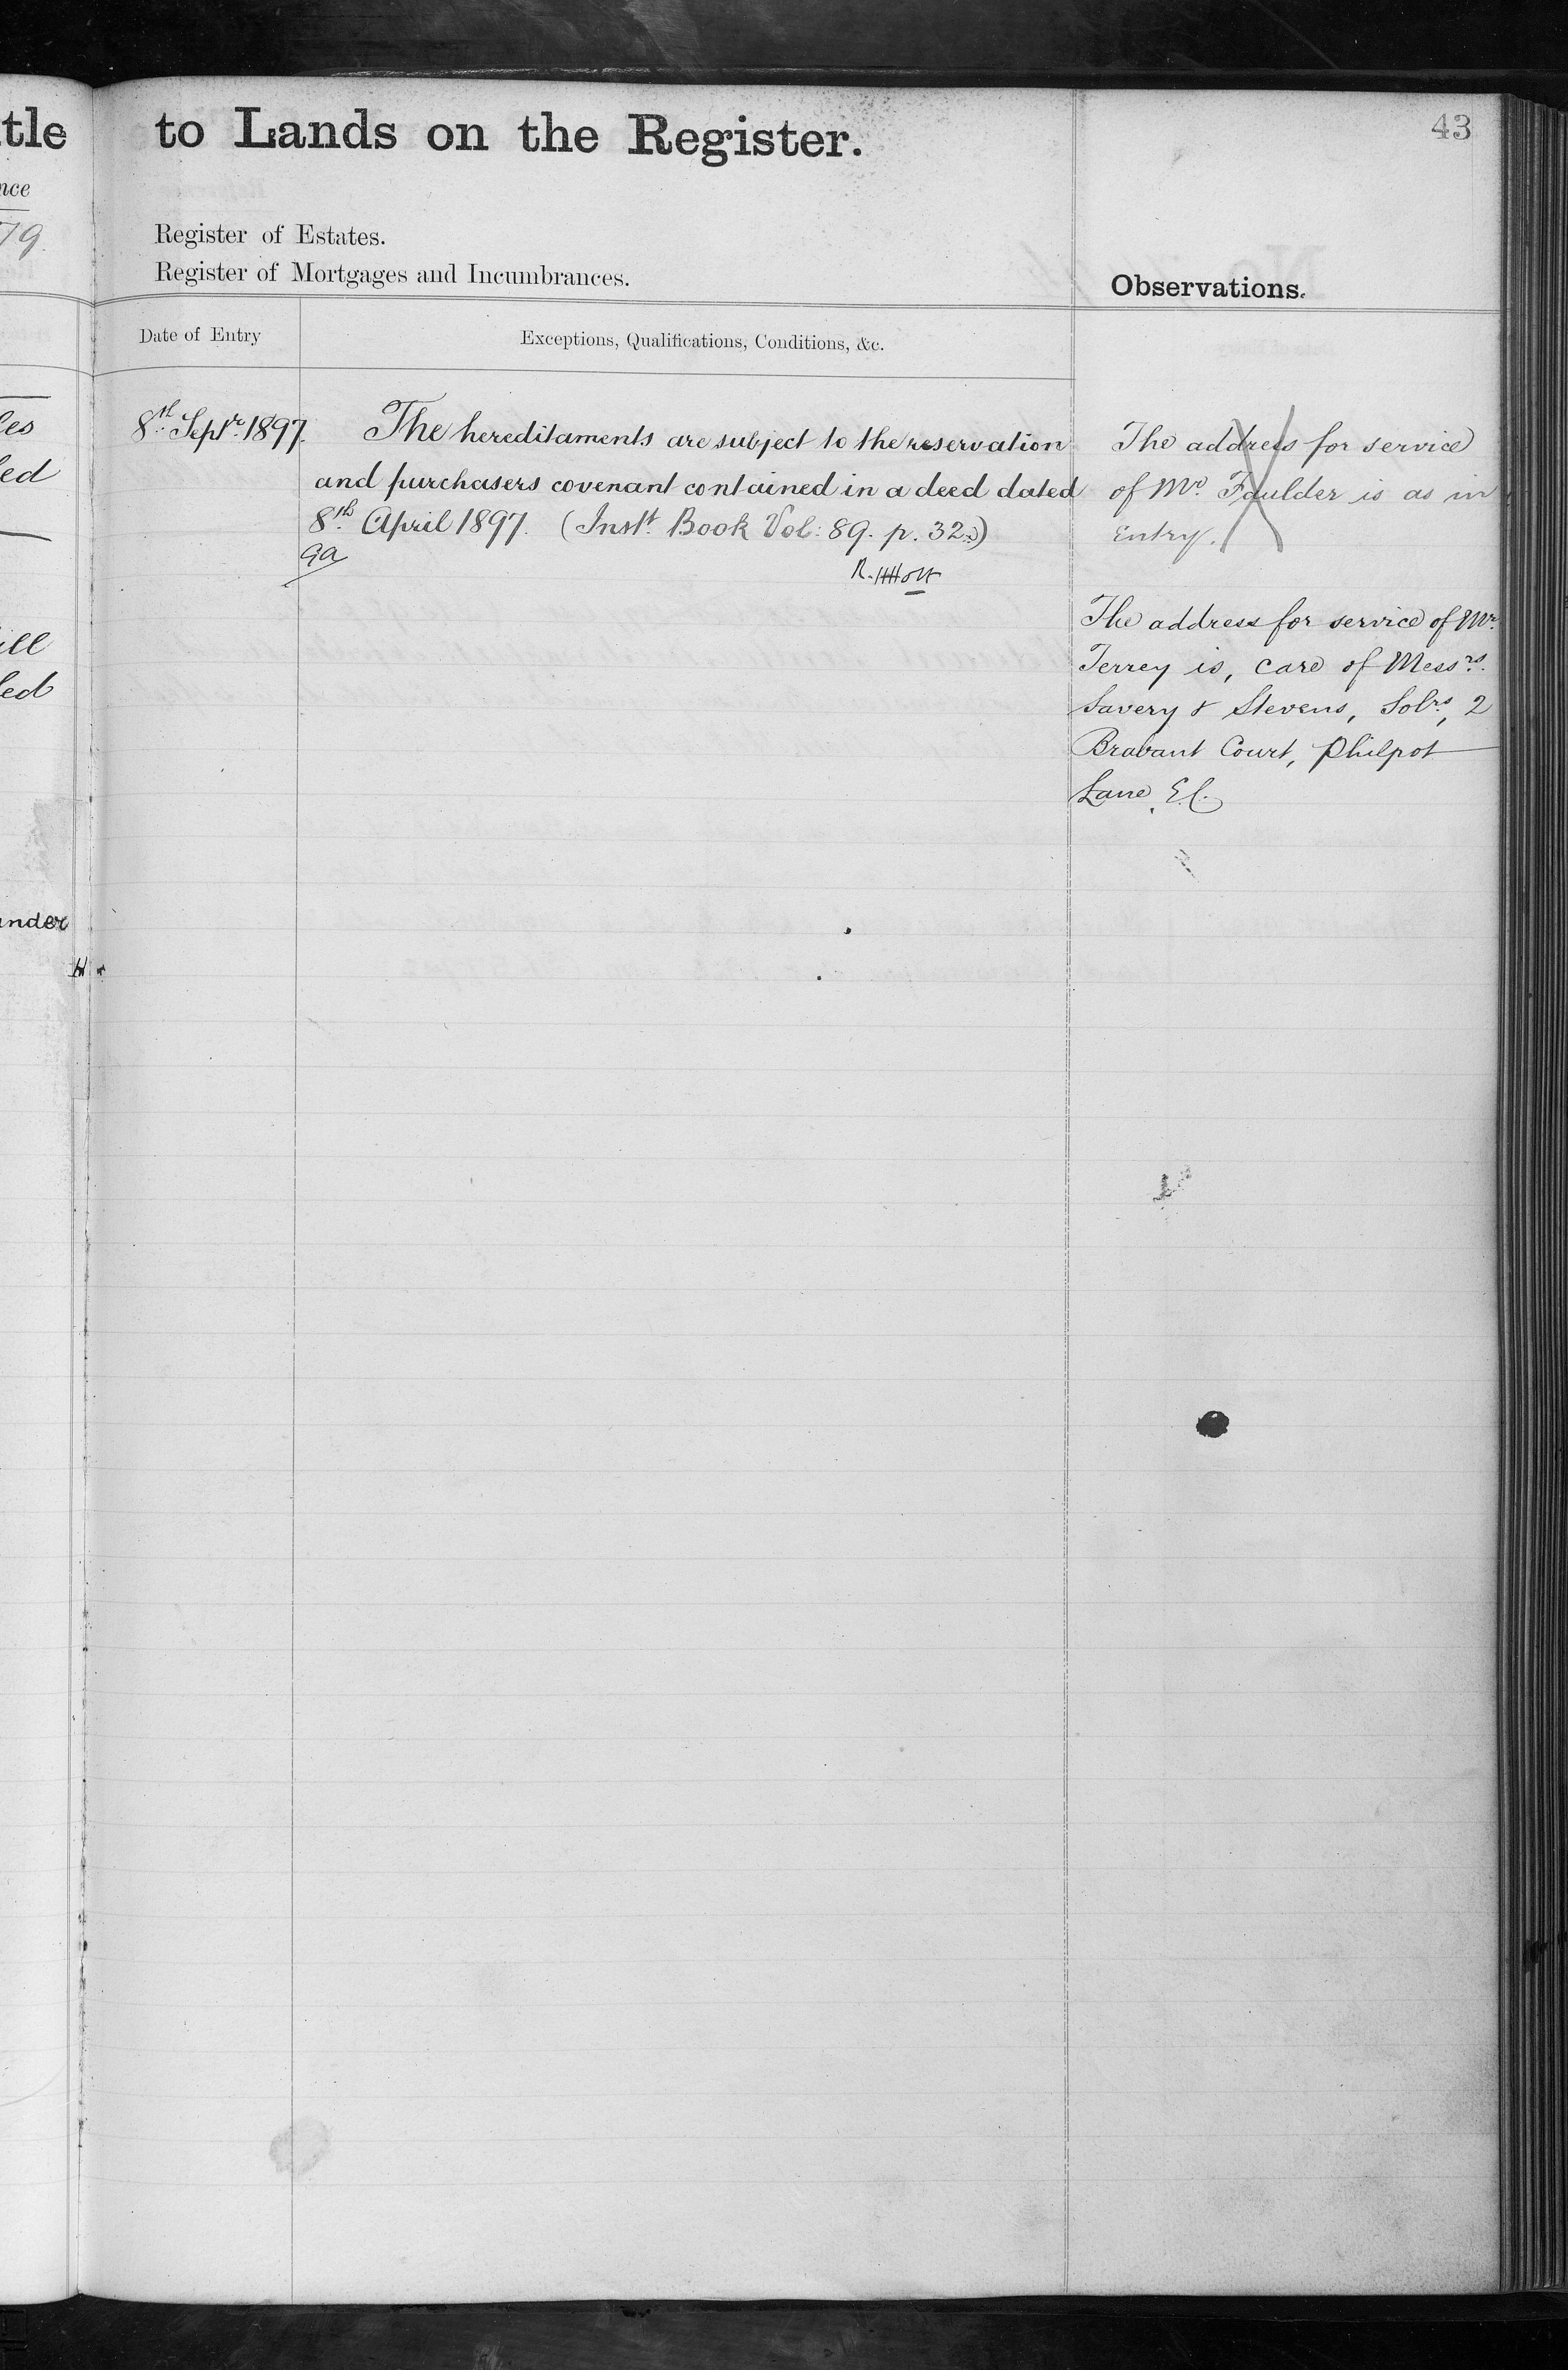 tle to Lands on the Register.
43
nce
79.
Register of Estates.
Register of Mortgages and Incumbrances.
Observations.
Date of Entry
Exceptions, Qualifications, Conditions, &c.
8th Septr 1897.
The hereditaments are subject to the reservation
and purchasers covenant contained in a deed dated
8th April 1897. (Inst. Book Vol: 89. p. 32.)
The address for service
of Mr. Faulder is as in
Entry.
The address for service of Mr.
Terrey is, care of Messrs.
Savery & Stevens, Solrs, 2
Brabant Court, Philpot
Lane, E.C.
les
led
ill
led
ander